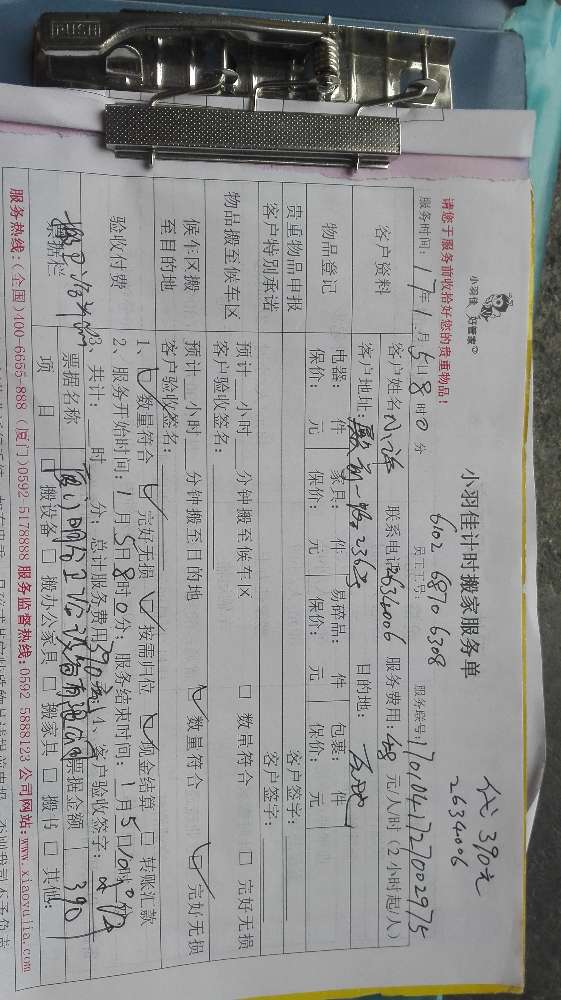 PUSH
代 390元
2634006
小羽佳 好管家
小羽佳计时搬家服务单
请您于服务前收拾好您的贵重物品!
6102 6870 6308
服务时间: 17年1月5日8时0分 员工工号: 服务联号: 17010417270029 75
客户资料
客户姓名 联系电话2634006 服务费用: 元/人/时 (2小时起/人)
客户地址: 目的地:
物品登记
电器: 件 家具: 件 易碎品: 件 包裹: 件
保价: 元 保价: 元 保价: 元 保价: 元
贵重物品申报 客户签字:
客户特别承诺 客户签字:
物品搬至候车区
预计 小时 分钟搬至候车区 □ 数量符合 □ 完好无损
客户验收签名:
候车区搬至目的地
预计 小时 分钟搬至目的地 数量符合 完好无损
客户验收签名:
验收付费
1、 数量符合 完好无损 按需归位 现金结算 □ 转账汇款
2、服务开始时间: 1月5日8时0分; 服务结束时间: 1月5日10时0
3、共计: 时 分; 总计服务费用390元; 4、客户验收签字:
票据栏
票据名称 票据金额 390
项 目 □ 搬设备 □ 搬办公家具 □ 搬家具 □ 搬书 □ 其他:
服务热线:(全国)400-6655-888 (厦门)0592-5178888 服务监督热线:0592-5888123 公司网站:www.xiaoyujia.com